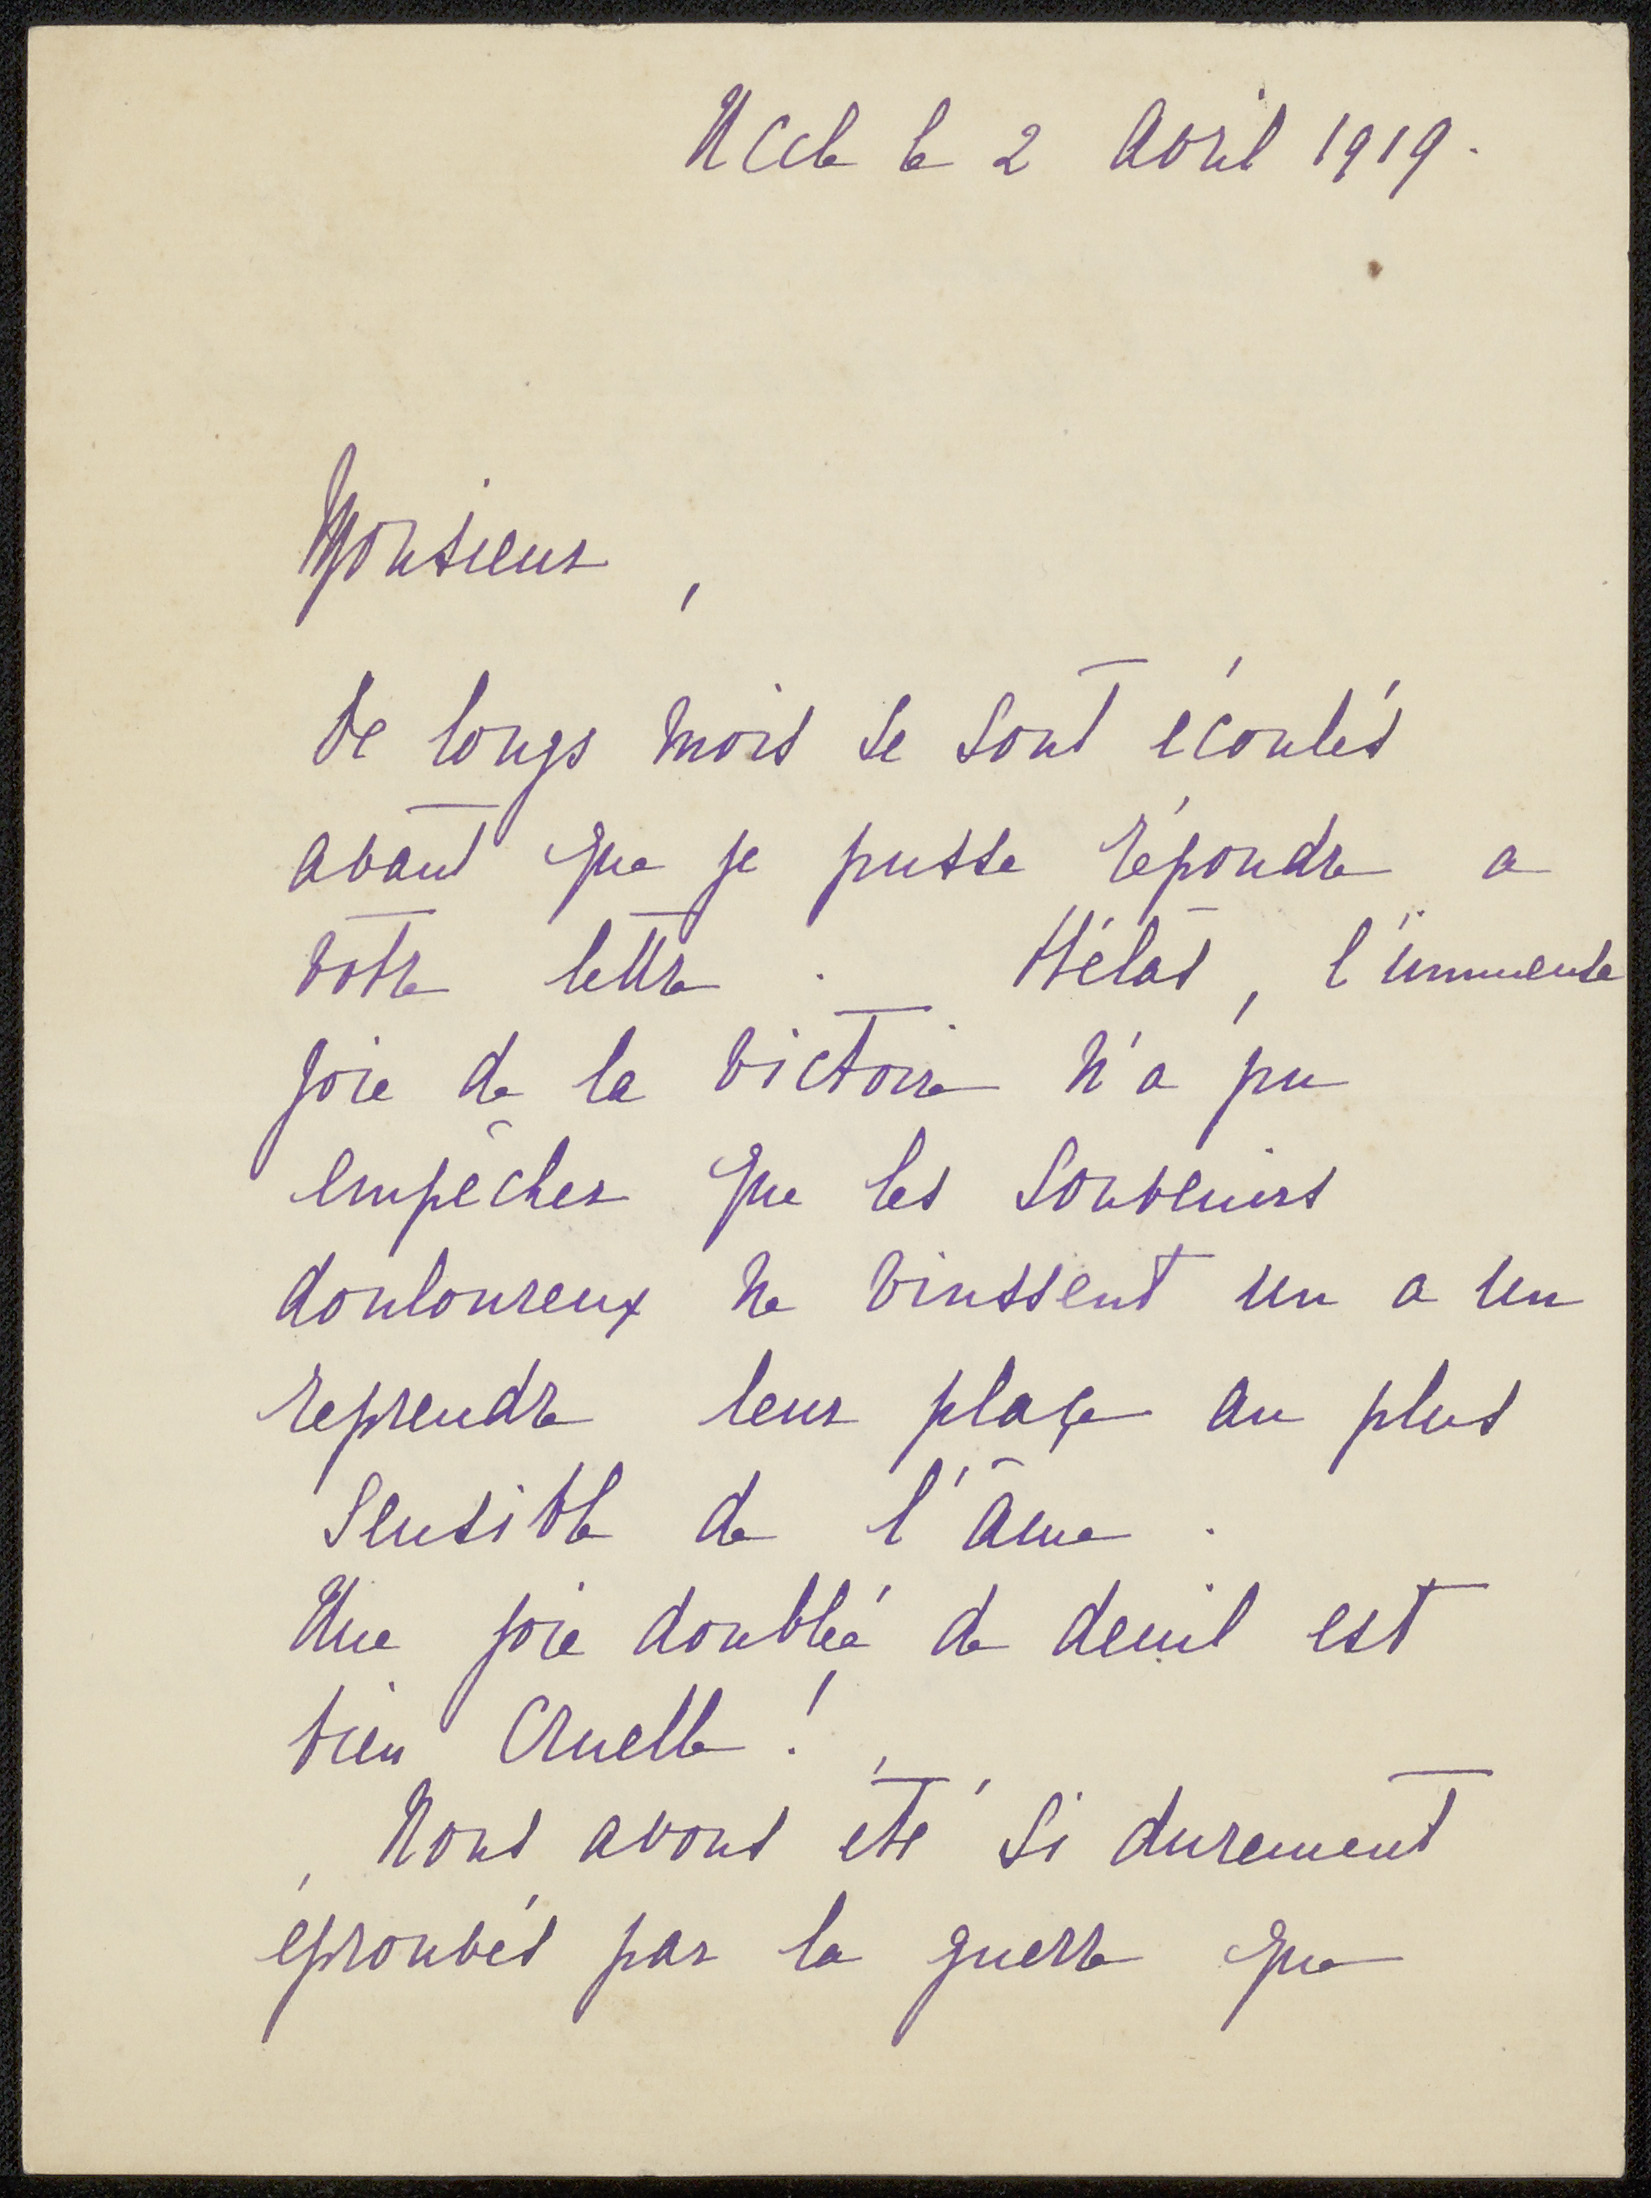 Uccle le 2 Avril 1919.
Monsieur,
De longs mois se sont écoulés
avant que je pusse répondre a
votre lettre. Hélas, l'immense
joie de la victoire n'a pu
empêcher que les souvenirs
douloureux ne vinssent un a un
reprendre leur plaçe au plus
sensible de l'âme.
Une joie doublée de deuil est
bien cruelle!
Nous avons été si durement
éprouvés par la guerre que